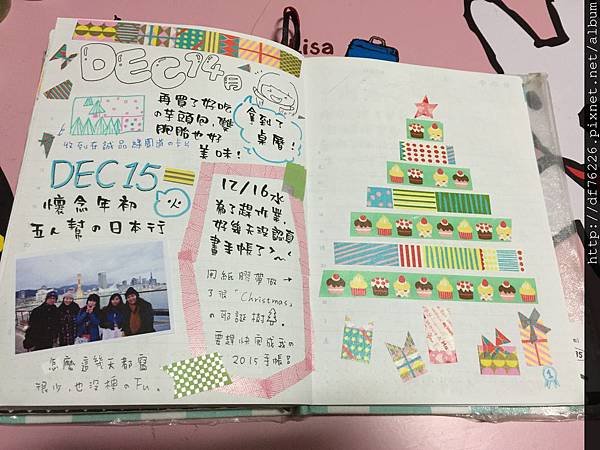 DEC 14
再買了好吃
の芋頭包,雙
胞胎也好
美味!
拿到了
桌曆!
收到在誠品綠園道のFu
DEC 15
火
懷念年初
五人幫の日本行
12/16 水
為了趕作業,
好幾天沒認真
畫手帳了~
用紙膠帶做→
了很"Christmas"
の耶誕樹
要趕快完成我の
2015手帳
怎麼這幾天都寫
很少,也沒梗のFu。
isa
1
15
http://df76226.pixnet.net/album